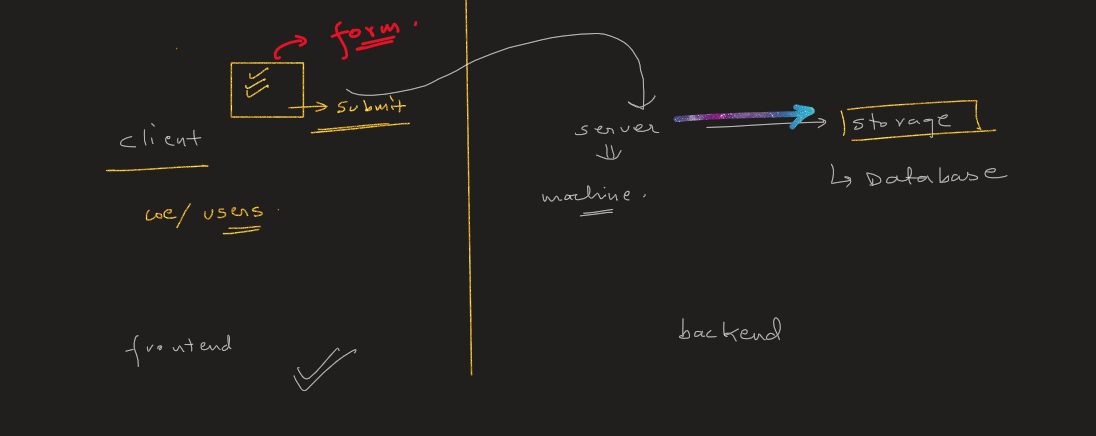 form.
submit
client
we/ users.
frontend
server
storage
machine.
Database
backend